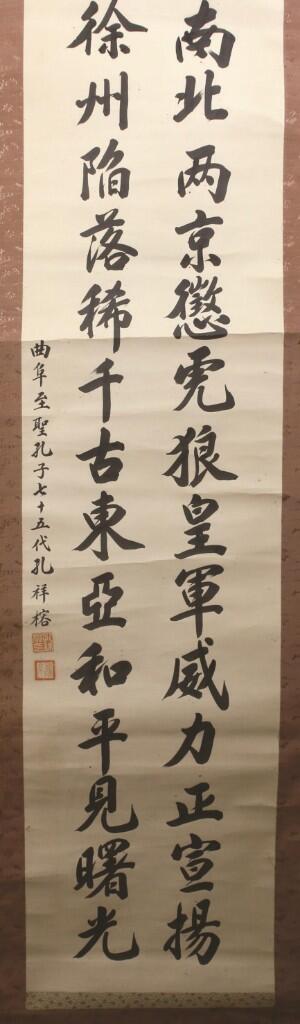 南北两京懲虎狼皇軍威力正宣揚
徐州陥落稀千古東亞和平見曙光
曲阜至聖孔子七十五代孔祥榕